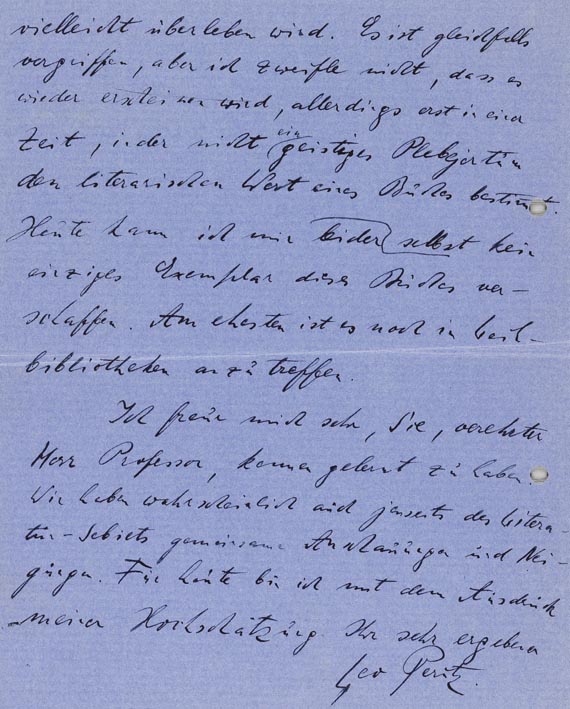 vielleicht überleben wird. Es ist gleichfalls
vergriffen, aber ich zweifle nicht, dass es
wieder erscheinen wird, allerdings erst in einer
Zeit, in der nicht ein geistiges Plebejertum
den literarischen Wert eines Buches bestimmt.
Heute kann ich mir leider selbst kein
einziges Exemplar dieses Buches ver-
schaffen. Am ehesten ist es noch in Leih-
bibliotheken anzutreffen.
Ich freue mich sehr, Sie, verehrter
Herr Professor, kennen gelernt zu haben.
Wir haben wahrscheinlich auch jenseits des Litera-
tur-Gebiets gemeinsame Anschauungen und Nei-
gungen. Für heute bin ich mit dem Ausdruck
meiner Hochschätzung Ihr sehr ergebener
Leo Perutz.